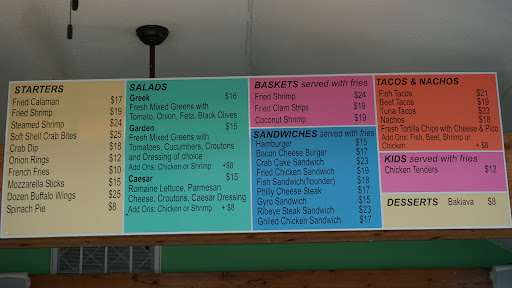 STARTERS
Fried Calamari $17
Fried Shrimp $19
Steamed Shrimp $24
Soft Shell Crab Bites $25
Crab Dip $18
Onion Rings $12
French Fries $10
Mozzarella Sticks $15
Dozen Buffalo Wings $25
Spinach Pie $8
SALADS
Greek $16
Fresh Mixed Greens with
Tomato, Onion, Feta, Black Olives
Garden $15
Fresh Mixed Greens with
Tomatoes, Cucumbers, Croutons
and Dressing of choice
Add Ons: Chicken or Shrimp +$8
Caesar $15
Romaine Lettuce, Parmesan
Cheese, Croutons, Caesar Dressing
Add Ons: Chicken or Shrimp + $8
BASKETS served with fries
Fried Shrimp $24
Fried Clam Strips $19
Coconut Shrimp $19
SANDWICHES served with fries
Hamburger $15
Bacon Cheese Burger $17
Crab Cake Sandwich $23
Fried Chicken Sandwich $19
Fish Sandwich(flounder) $18
Philly Cheese Steak $17
Gyro Sandwich $15
Ribeye Steak Sandwich $23
Grilled Chicken Sandwich $17
TACOS & NACHOS
Fish Tacos $21
Beef Tacos $19
Tuna Tacos $23
Nachos $18
Fresh Tortilla Chips with Cheese & Pico
Add Ons: Fish, Beef, Shrimp or
Chicken + $8
KIDS served with fries
Chicken Tenders $12
DESSERTS Baklava $8